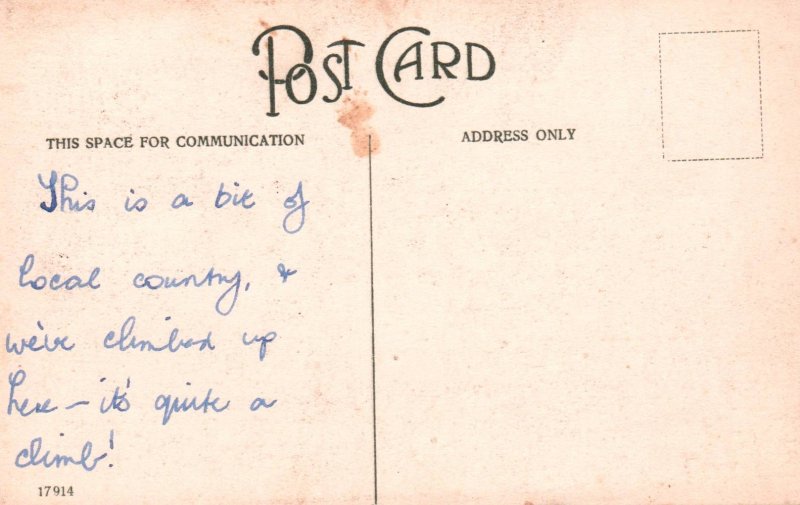 POST CARD
THIS SPACE FOR COMMUNICATION
ADDRESS ONLY
This is a bit of
local country, &
we've climbed up
here – it's quite a
climb!
17914